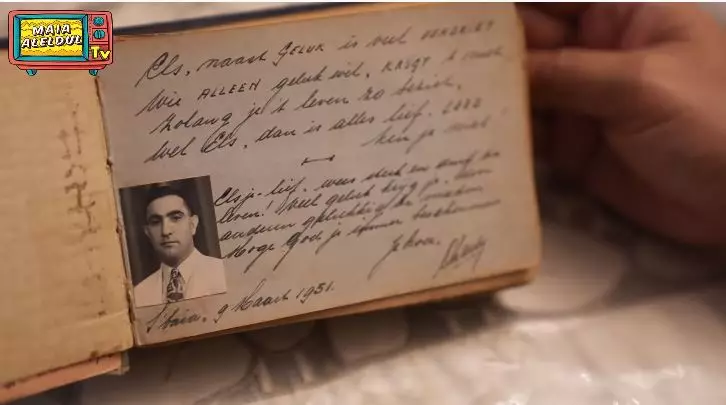 MAIA
ALELDUL
TV
Els, naast GELUK is veel VERDRIET
Wie ALLEEN geluk wil, KRYGT 't nooit
Zolang je 't leven zo beziet,
Wel Els, dan is alles lief. LEED
ken je niet.
Els je-lief, wees sterk en durf te
leven! Veel geluk krijg je, door
anderen gelukkig te maken
Moge God je immer beschermen
Je
9 Maart 1951.